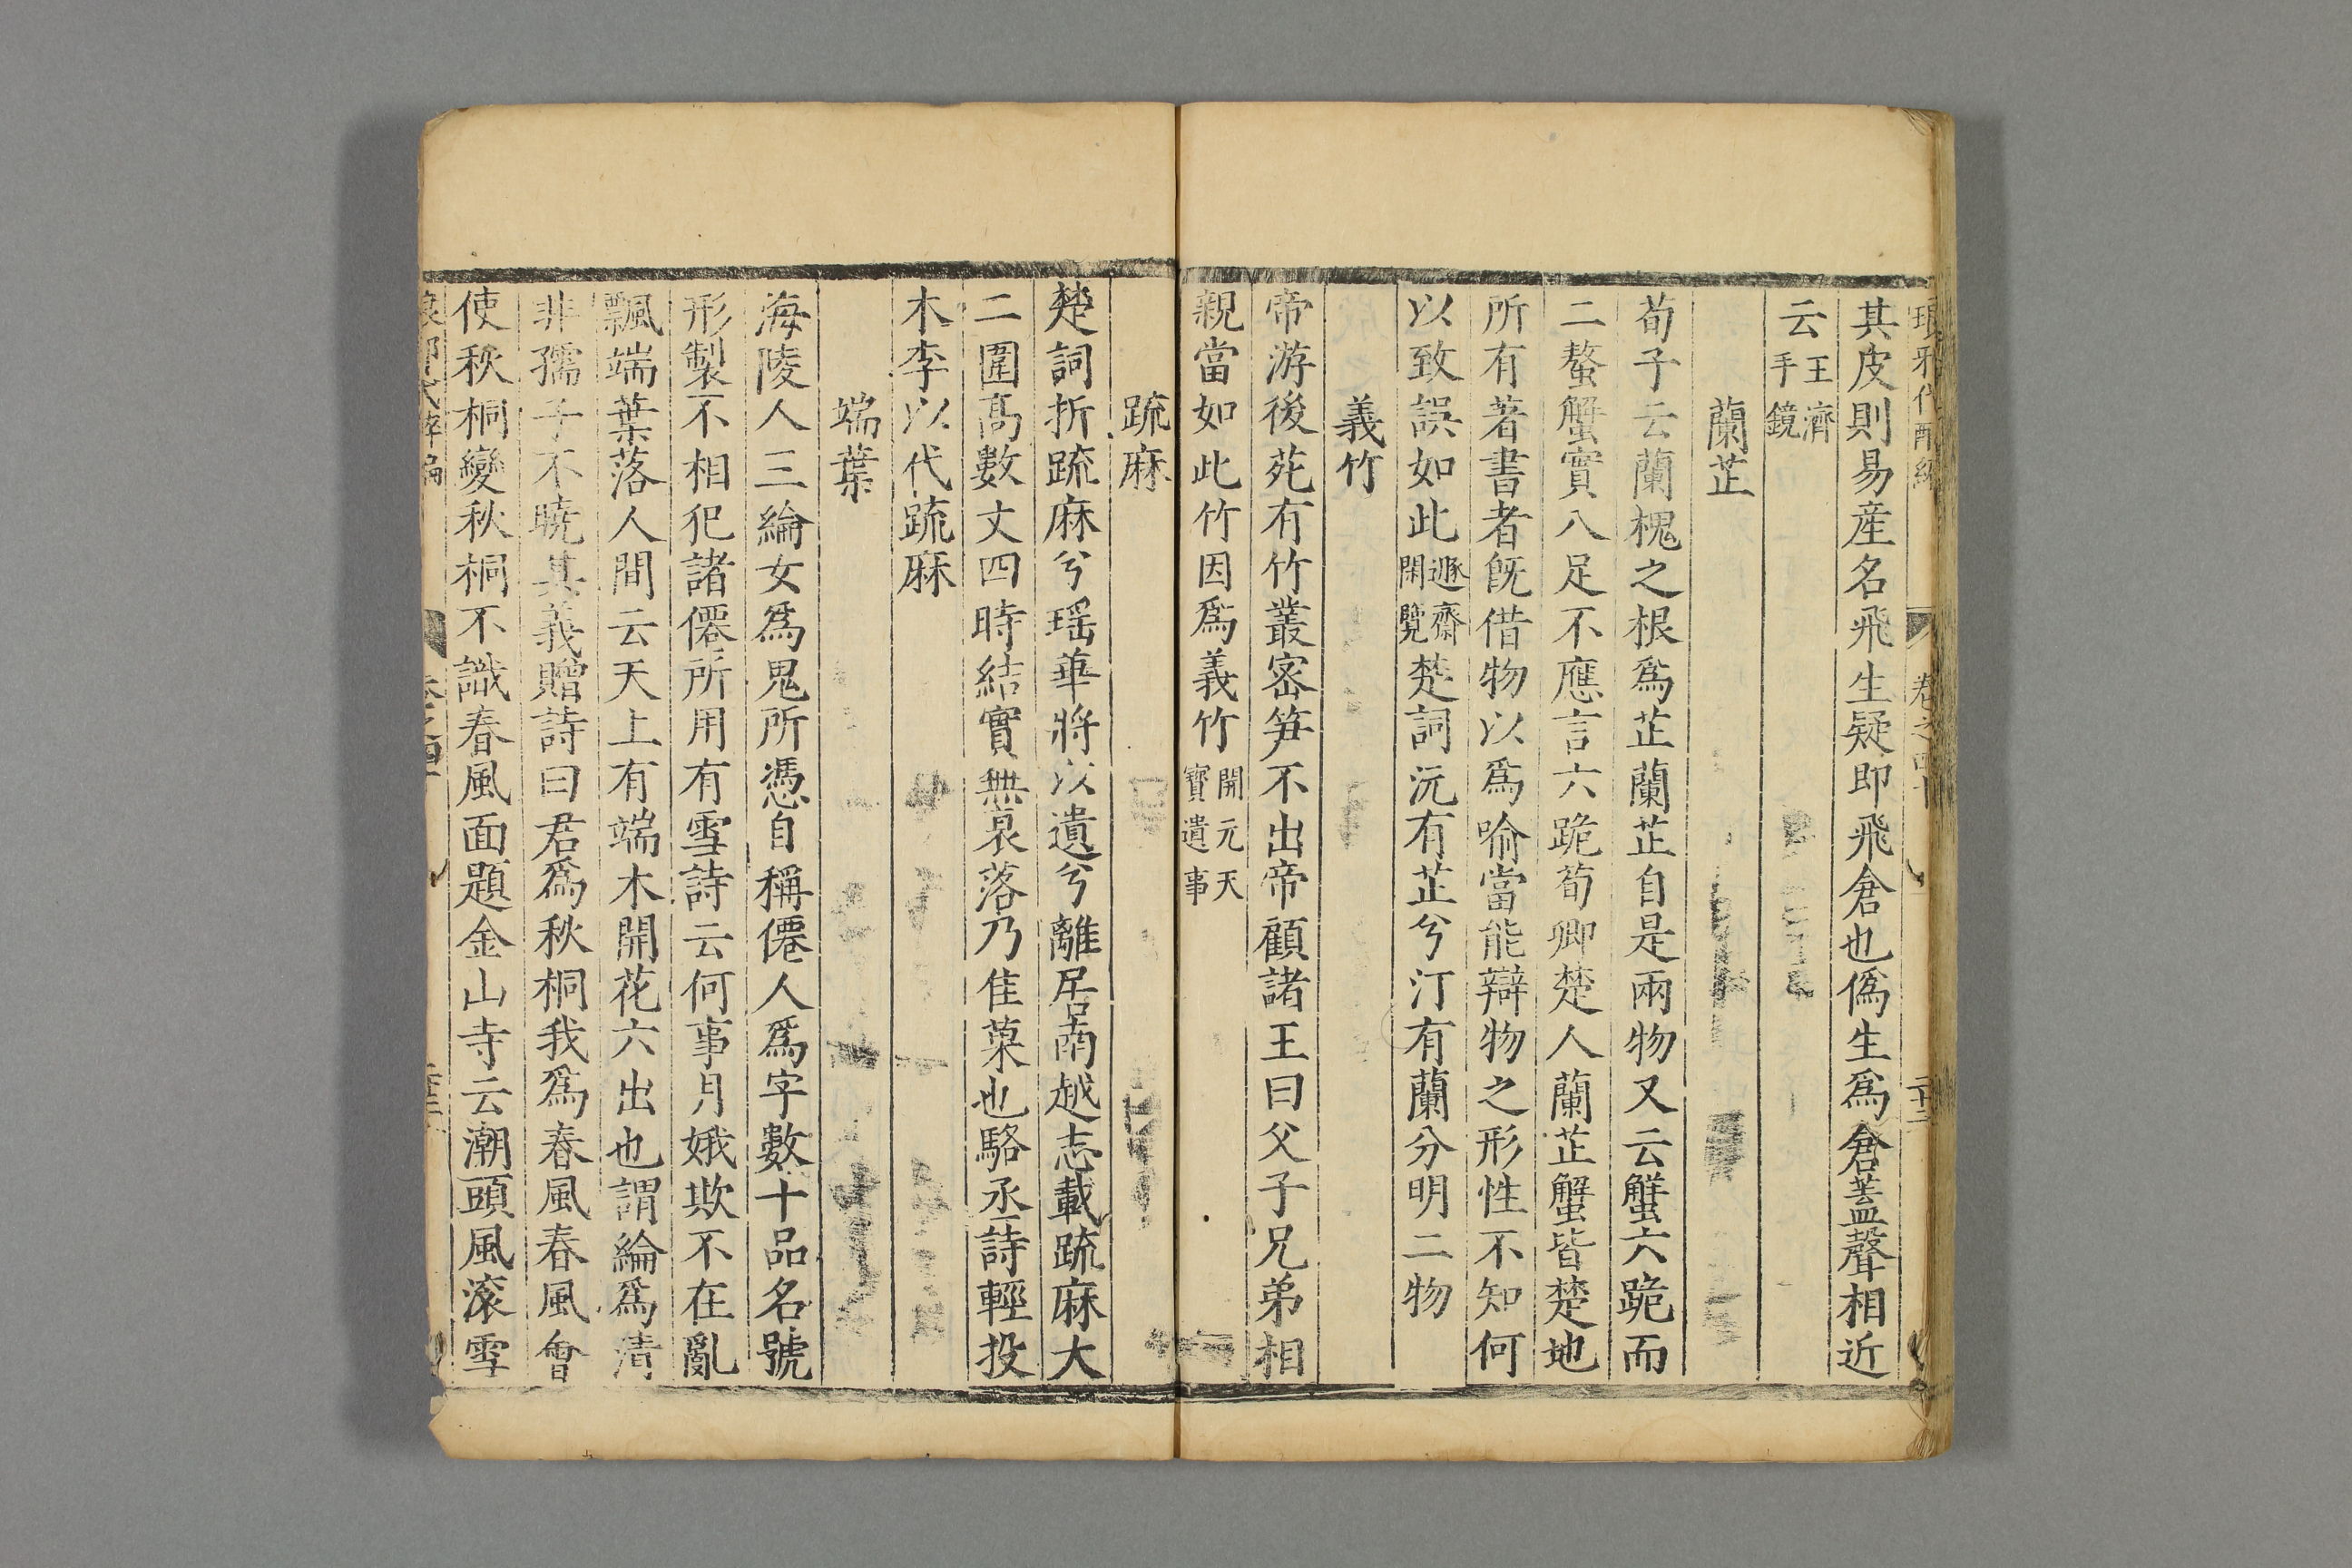 其皮則易産名飛生疑即飛倉也僞生爲倉蓋聲相近
云王濟手鏡
蘭芷
荀子云蘭槐之根爲芷蘭芷自是兩物又云蠏六跪而
二螯蟹實八足不應言六跪荀卿楚人蘭芷蟹皆楚地
所有著書者旣借物以爲喻當能辯物之形性不知何
以致誤如此遯齋閑覽楚詞沅有芷兮汀有蘭分明二物
義竹
帝游後苑有竹叢宻笋不出帝顧諸王曰父子兄弟相
親當如此竹因爲義竹開元天寶遺事
䟽麻
楚詞折䟽麻兮瑶華將以遺兮離居南越志載䟽麻大
二圍髙數丈四時結實無衰落乃佳菓也駱丞詩輕投
木李以代䟽麻
端葉
海陵人三綸女爲鬼所憑自稱僊人爲字數十品名號
形製不相犯諸僊所用有雪詩云何事月娥欺不在亂
飄端葉落人間云天上有端木開花六出也謂綸爲清
非孺子不曉其義贈詩曰君爲秋桐我爲春風春風會
使秋桐變秋桐不識春風面題金山寺云潮頭風滚雪